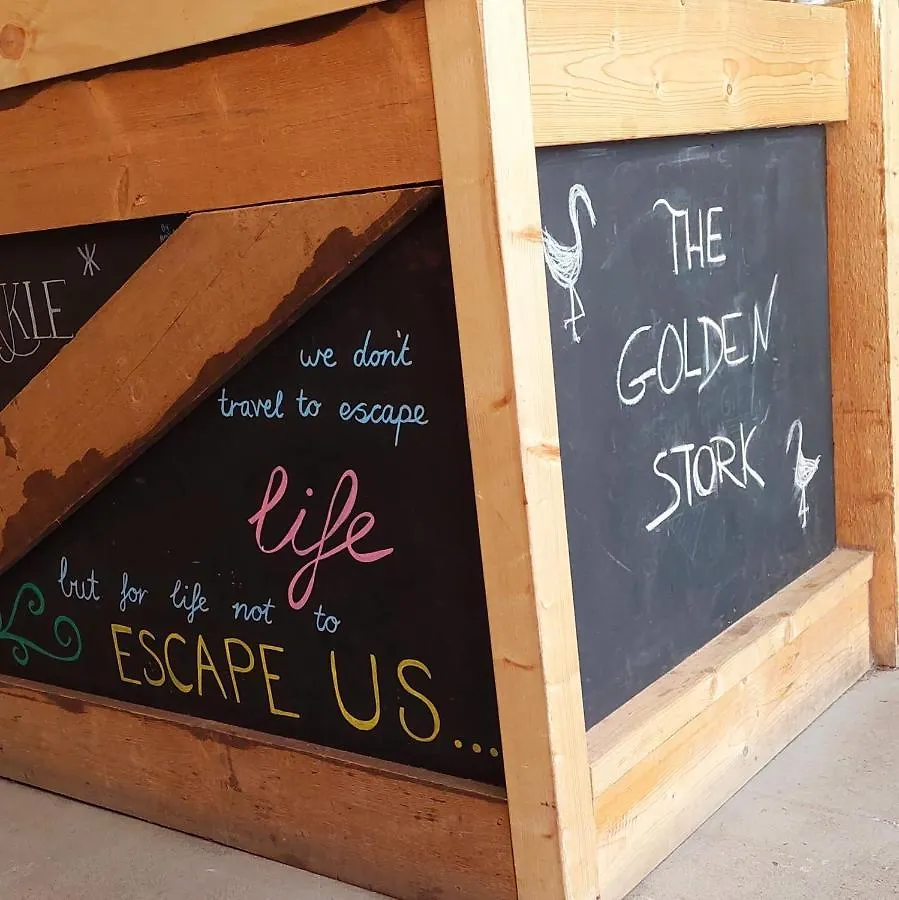 we don't
travel to escape
life
but for life not to
ESCAPE US...
THE
GOLDEN
STORK